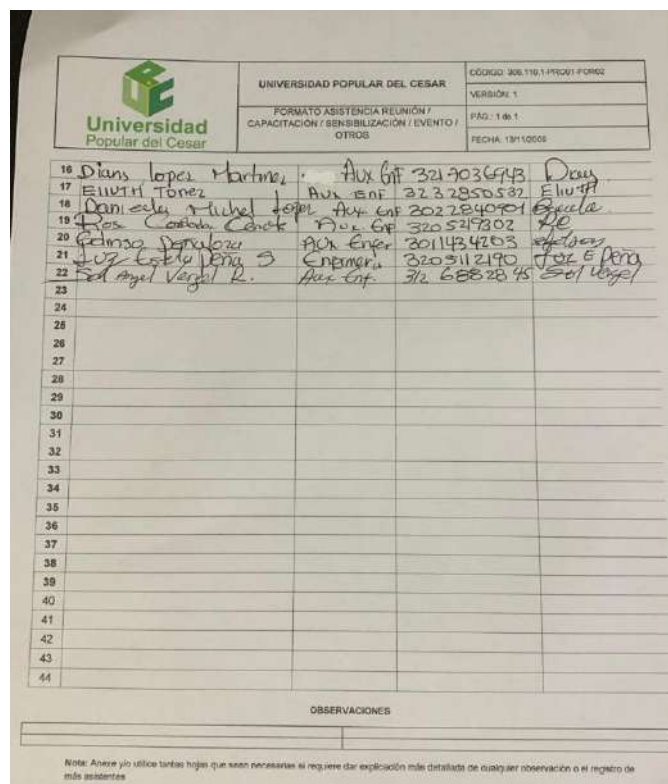 Universidad
Popular del Cesar
UNIVERSIDAD POPULAR DEL CESAR
FORMATO ASISTENCIA REUNIÓN /
CAPACITACIÓN / SENSIBILIZACIÓN / EVENTO /
OTROS
VERSIÓN: 1
PÁG.: 1 de 1
16 Dians lopez Martinez Aux Enf
17 Elluth Torrez Aux Enf 3232850532 Elluth
18 Michel lopez Aux Enf 3022840901
19 Aux Enf 3205219302
20 Aux Enfer 3011434203
21 Luz Estela Peña S Enfermera 3205112190 Luz E Peña
22 Sol Angel Vergel R. Aux Enf. 312 6882845 Sol Vergel
23
24
25
26
27
28
29
30
31
32
33
34
35
36
37
38
39
40
41
42
43
44
OBSERVACIONES
Nota: Anexe y/o utilice tantas hojas que sean necesarias si requiere dar explicación más detallada de cualquier observación o el registro de
más asistentes